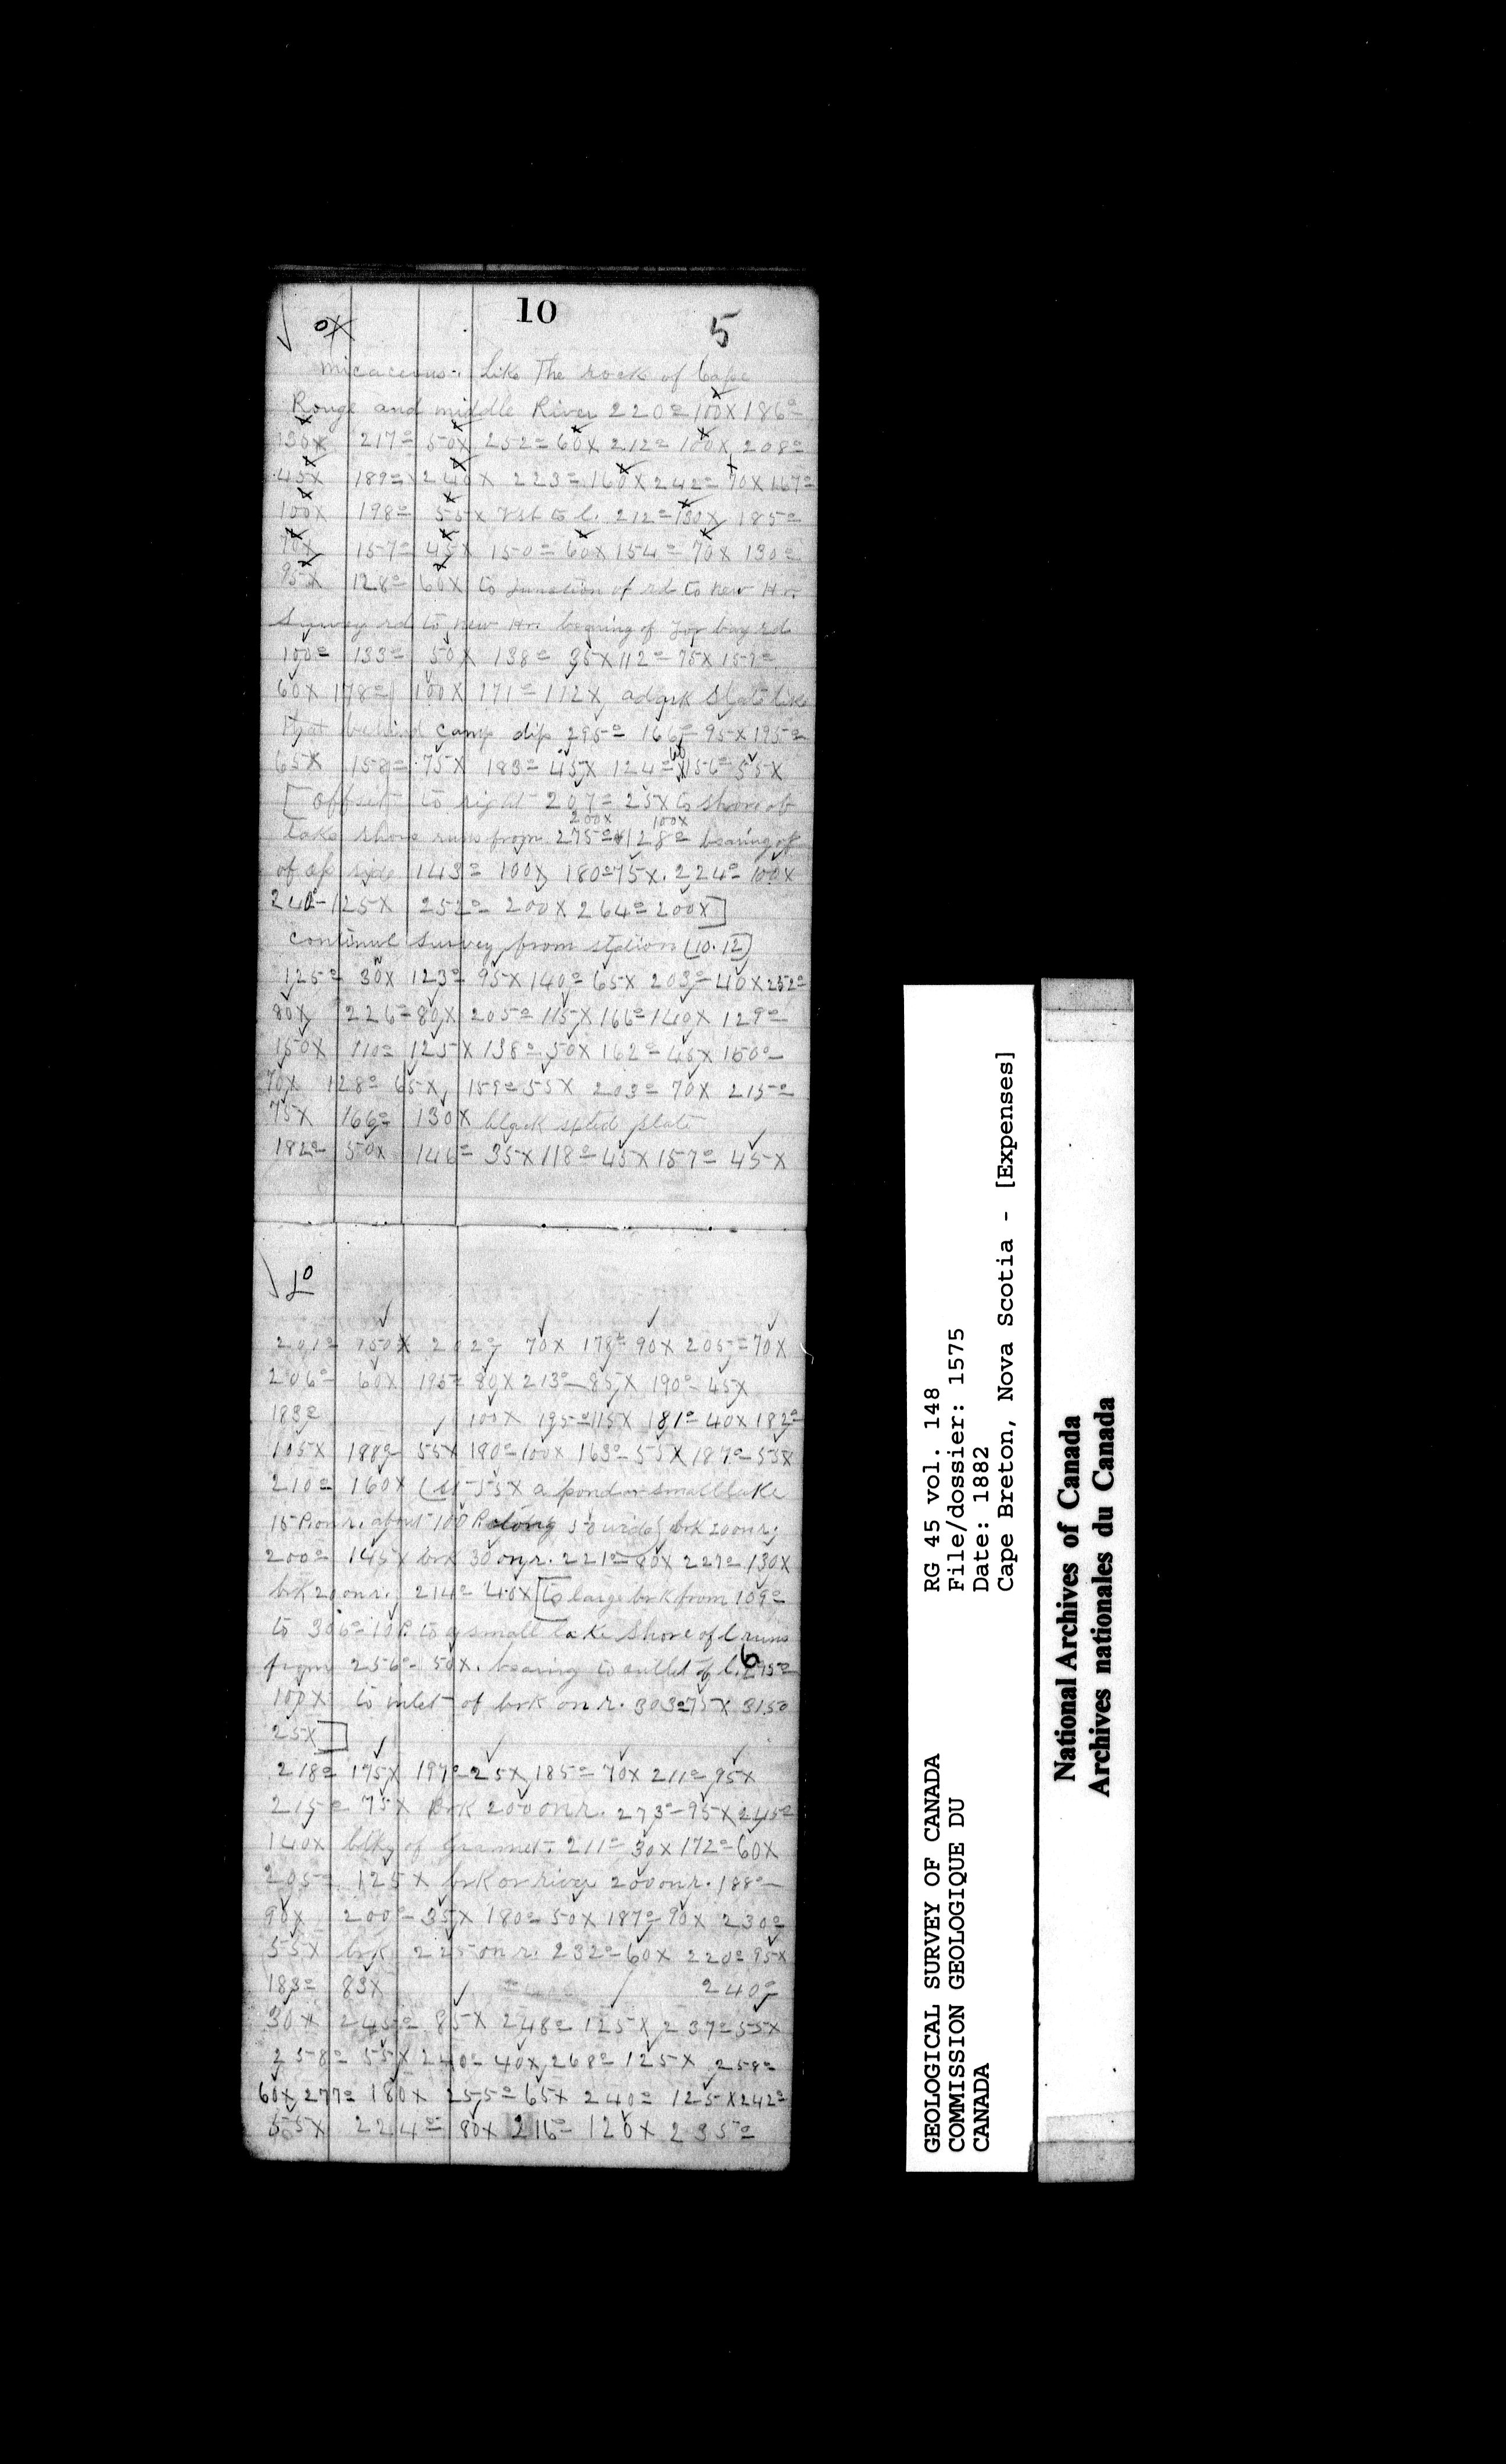 10
5
micaceous. like the rock of Cape
Rouge and middle River 220° 100X 186°
130X 217° 50X 252° 60X 212° 100X 208°
45X 189° 240X 223° 160X 242° 70X 167°
100X 198° 55X to l. 212° 130X 185°
70X 157° 45X 150° 60X 154° 70X 130°
95X 128° 60X to junction of rd to new Hr.
Survey rd to new Hr. bearing of bay rd
100° 133° 50X 138° 35X 112° 75X 157°
60X 178° 100X 171° 112X a dark slate like
that behind camp dip 295° 166° 95X 195°
65X 158° 75X 183° 45X 124° 60X 156° 55X
[offset to right 207° 25X to shore of
200X 100X
lake shore runs from 275° 128° bearing of
of op side 143° 100X 180° 75X. 224° 100X
240° 125X 252° 200X 264° 200X]
continue survey from station (10.12)
125° 30X 123° 95X 140° 65X 203° 40X 252°
80X 226° 80X 205° 115X 166° 140X 129°
150X 110° 125X 138° 50X 162° 45X 150°
70X 128° 65X 159° 55X 203° 70X 215°
75X 166° 130X black slate
182° 50X 146° 35X 118° 45X 157° 45X
201° 150X 202° 70X 178° 90X 205° 70X
206° 60X 195° 80X 213° 85X 190° 45X
183° 100X 195° 115X 181° 40X 182°
105X 188° 55X 180° 100X 163° 55X 187° 55X
210° 160X (at 55X a pond or small lake
15 P. on r. about 100 P. long 50 wide) brk 20 on r;
200° 145X brk 30 on r. 221° 80X 227° 130X
brk 20 on r. 214° 40X [to large brk from 109°
to 306° 10 P. to a small lake Shore of l runs
6
from 256° 50X. bearing to outlet of l. 295°
100X to inlet of brk on r. 303° 75X 315°
25X]
218° 175X 197° 25X 185° 70X 211° 95X
215° 75X Brk 200 on r. 273° 95X 245°
140X 211° 30X 172° 60X
205° 125X brk or river 200 on r. 188°
90X 200° 35X 180° 50X 187° 90X 230°
55X brk 225 on r. 232° 60X 220° 95X
183° 83X 240°
30X 245° 85X 248° 125X 237° 55X
258° 55X 240° 40X 268° 125X 258°
60X 277° 180X 255° 65X 240° 125X 242°
55X 224° 80X 216° 120X 235°
GEOLOGICAL SURVEY OF CANADA
COMMISSION GEOLOGIQUE DU
CANADA
RG 45 vol. 148
File/dossier: 1575
Date: 1882
Cape Breton, Nova Scotia - [Expenses]
National Archives of Canada
Archives nationales du Canada